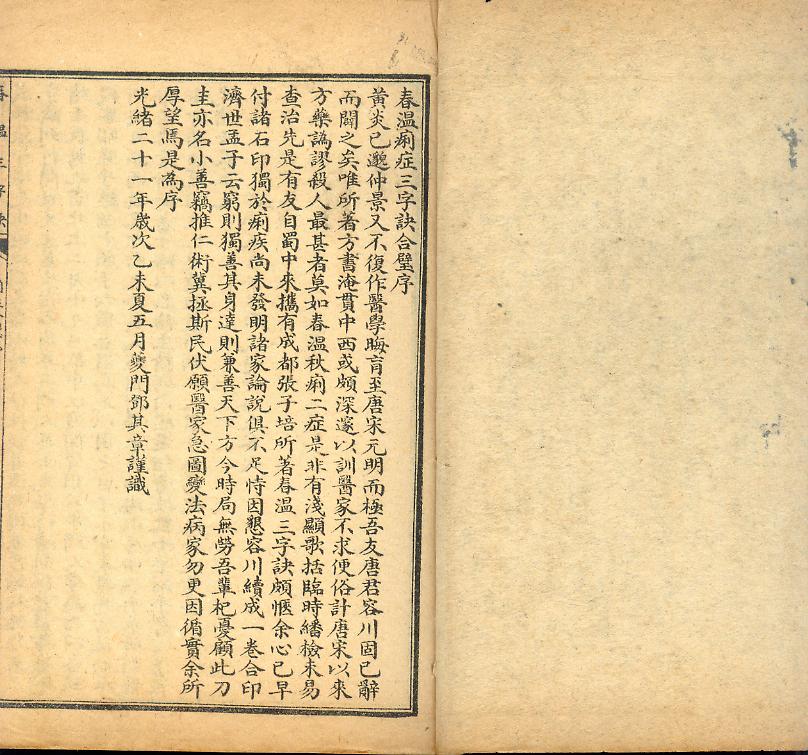 春溫痢症三字訣合璧序
黃炎已邈仲景又不復作醫學晦盲至唐宋元明而極吾友唐君容川固已辭
而闢之矣唯所著方書淹貫中西或頗深邃以訓醫家不求便俗計唐宋以來
方藥譌謬殺人最甚者莫如春溫秋痢二症是非有淺顯歌括臨時繙檢未易
查治先是有友自蜀中來攜有成都張子培所著春溫三字訣頗愜余心已早
付諸石印獨於痢疾尚未發明諸家論說俱不足恃因懇容川續成一卷合印
濟世孟子云窮則獨善其身達則兼善天下方今時局無勞吾輩杞憂顧此刀
圭亦名小善竊推仁術冀拯斯民伏願醫家急圖變法病家勿更因循實余所
厚望焉是為序
光緒二十一年歲次乙未夏五月夔門鄧其章謹識
春溫三字訣